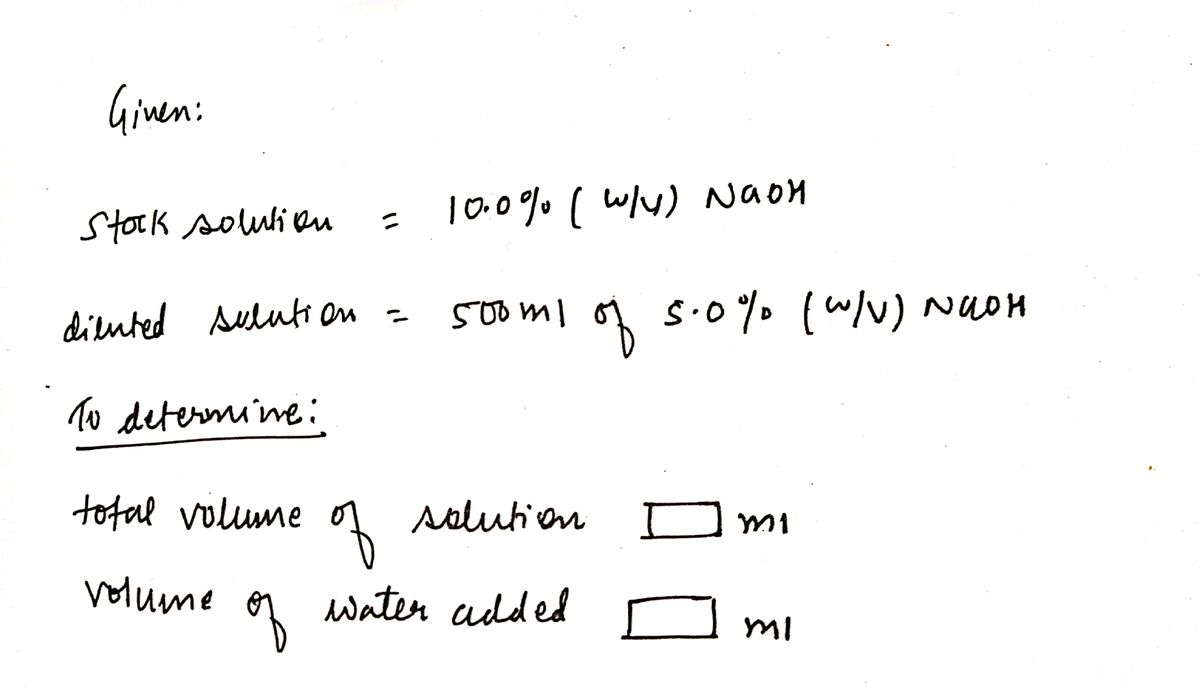 Given:
Stock solution = 10.0% (w/v) NaOH
diluted solution = 500 ml of 5.0% (w/v) NaOH
To determine:
total volume of solution ml
volume of water added ml